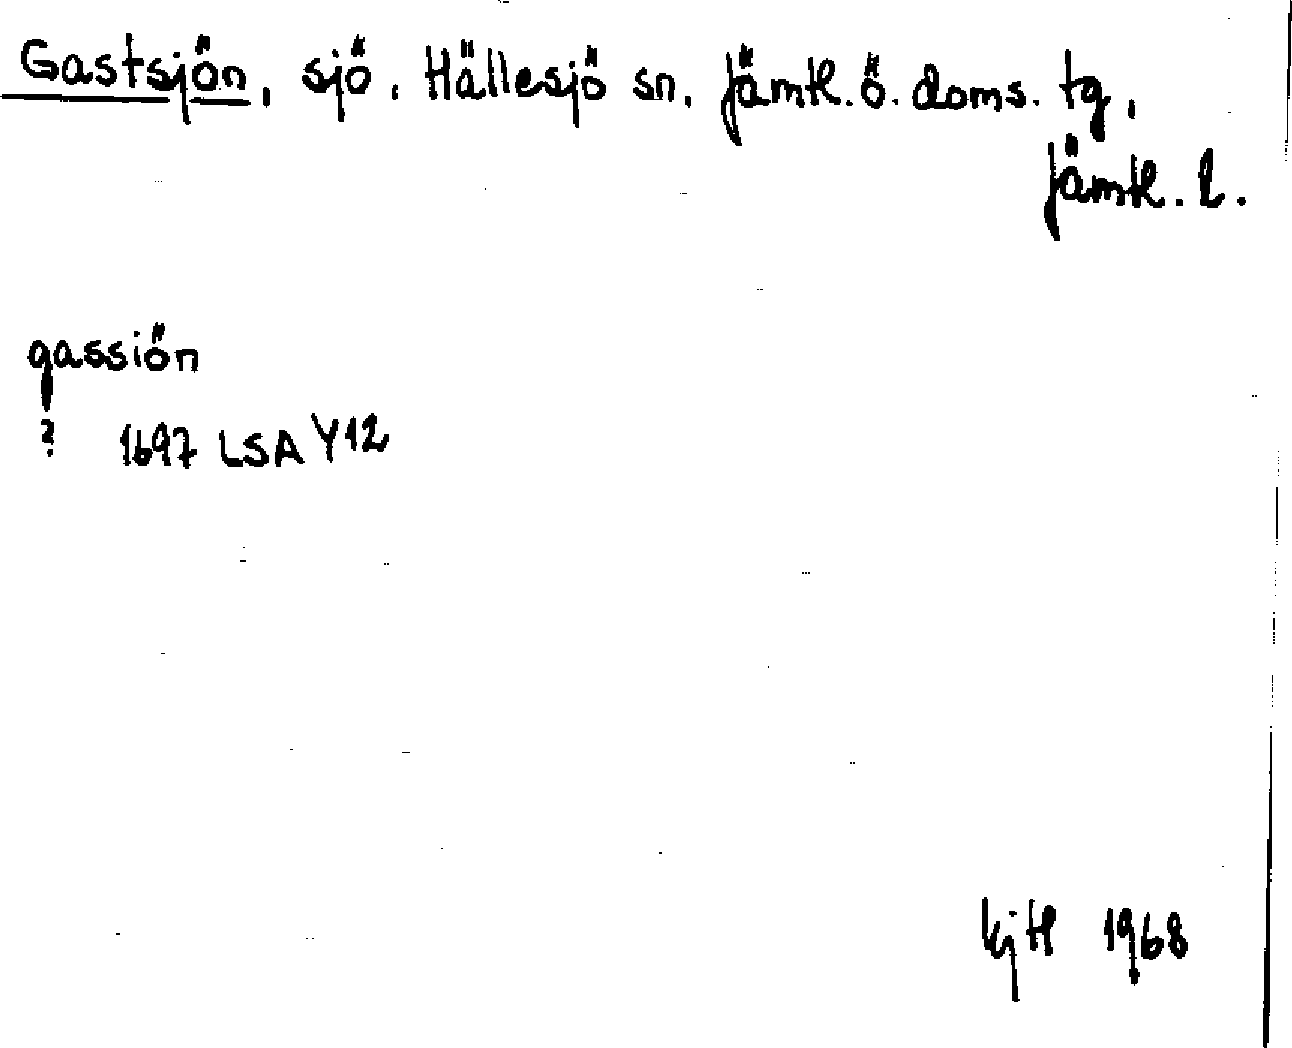 Gastsjön, sjö, Hällesjö sn, Jämtl. ö. doms. tg,
Jämtl. l.
gassiön
? 1697 LSA Y12
KjH 1968